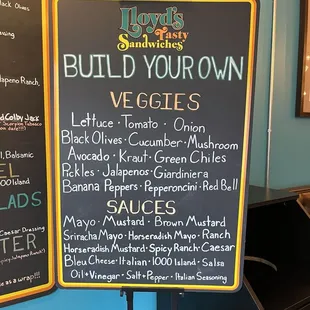 Black Olives
essing
Jalapeno Ranch,
Colby Jack
Scorpion Tabasco
Al, Balsamic
EL
1000 Island
LADS
Caesar Dressing
TER
as a wrap!!!
Lloyd's
Tasty
Sandwiches
BUILD YOUR OWN
VEGGIES
Lettuce · Tomato · Onion
Black Olives · Cucumber · Mushroom
Avocado · Kraut · Green Chiles
Pickles · Jalapenos · Giardiniera
Banana Peppers · Pepperoncini · Red Bell
SAUCES
Mayo · Mustard · Brown Mustard
Sriracha Mayo · Horseradish Mayo · Ranch
Horseradish Mustard · Spicy Ranch · Caesar
Bleu Cheese · Italian · 1000 Island · Salsa
Oil + Vinegar · Salt + Pepper · Italian Seasoning